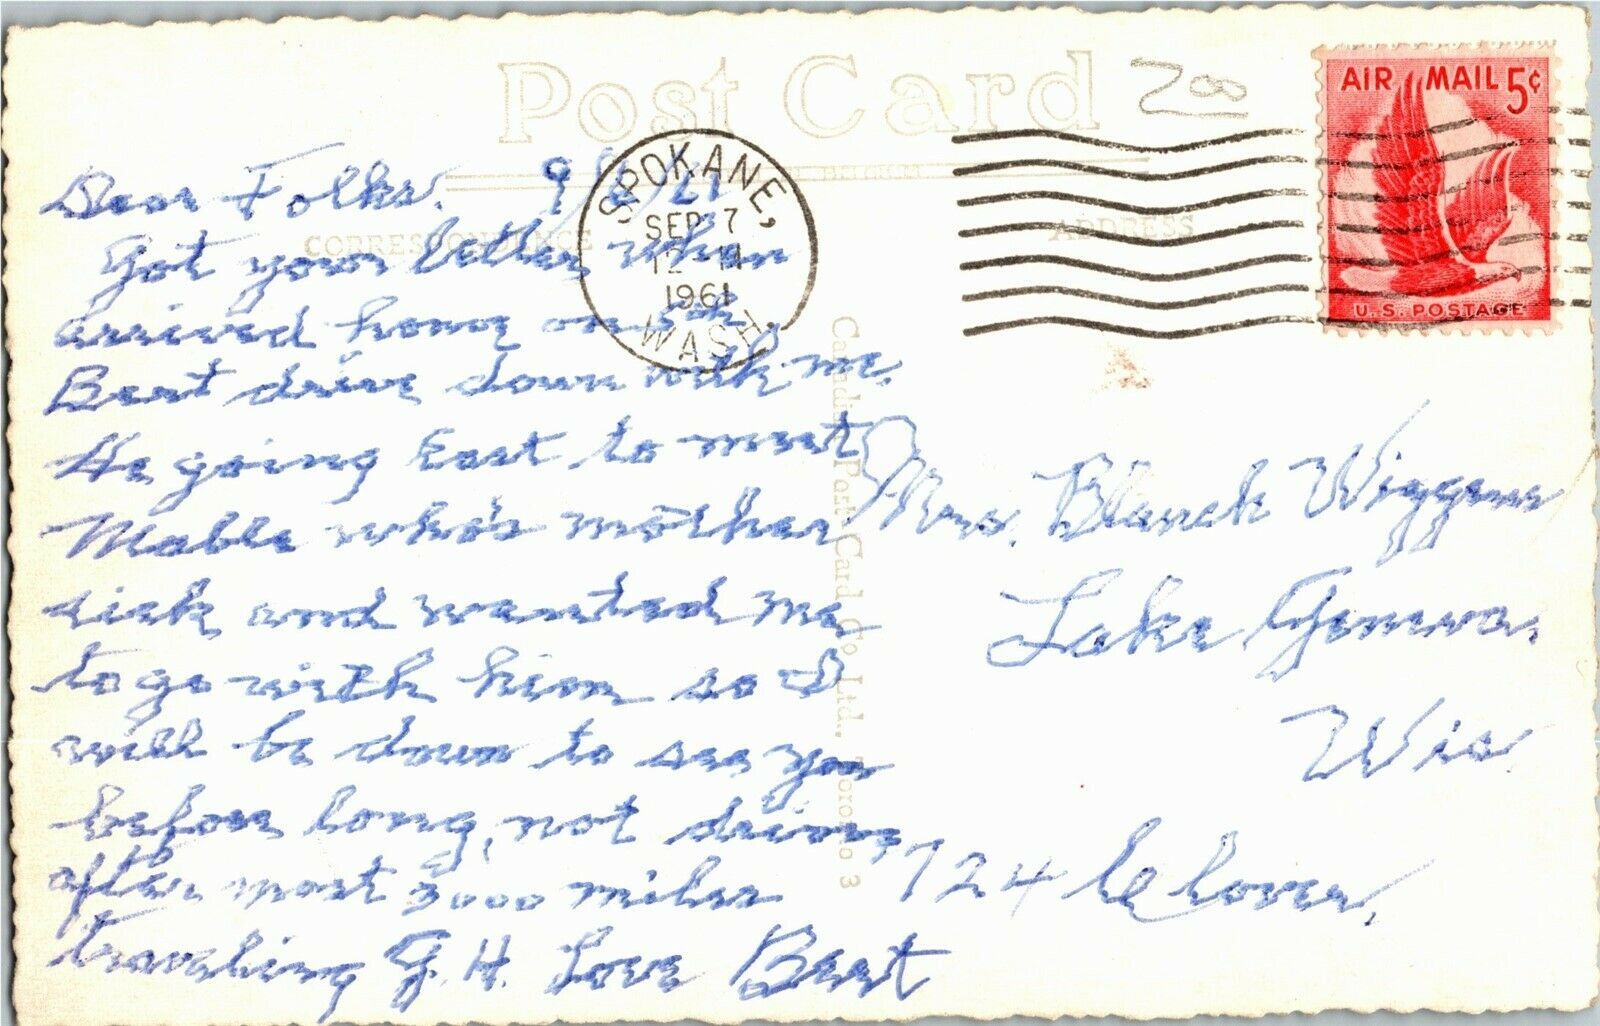 Post Card
200
AIR MAIL 5¢
U.S. POSTAGE
SPOKANE,
SEP 7
1961
WASH.
CORRESPONDENCE
ADDRESS
Dear Folks.
Got your letter when
arrived home on 5th,
Beat drive down with me.
He going East to meet
Mable who's mother
sick and wanted me
to go with him so I
will be down to see you
before long, not driving
after most 3000 miles
traveling G. H. Love Beat
Mrs. Blanch Wiggens
Lake Geneva,
Wis
724
Post Card Co. Ltd. Toronto 3